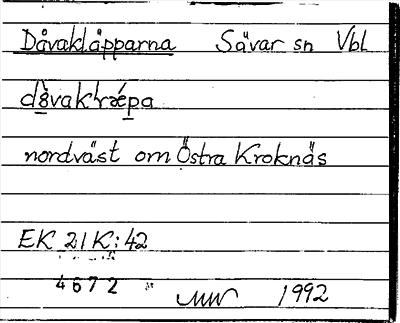 Dåvaklåpparna Sävar sn Vbl
nordväst om Östra Kroknäs
EK 21K:42
4672
1992